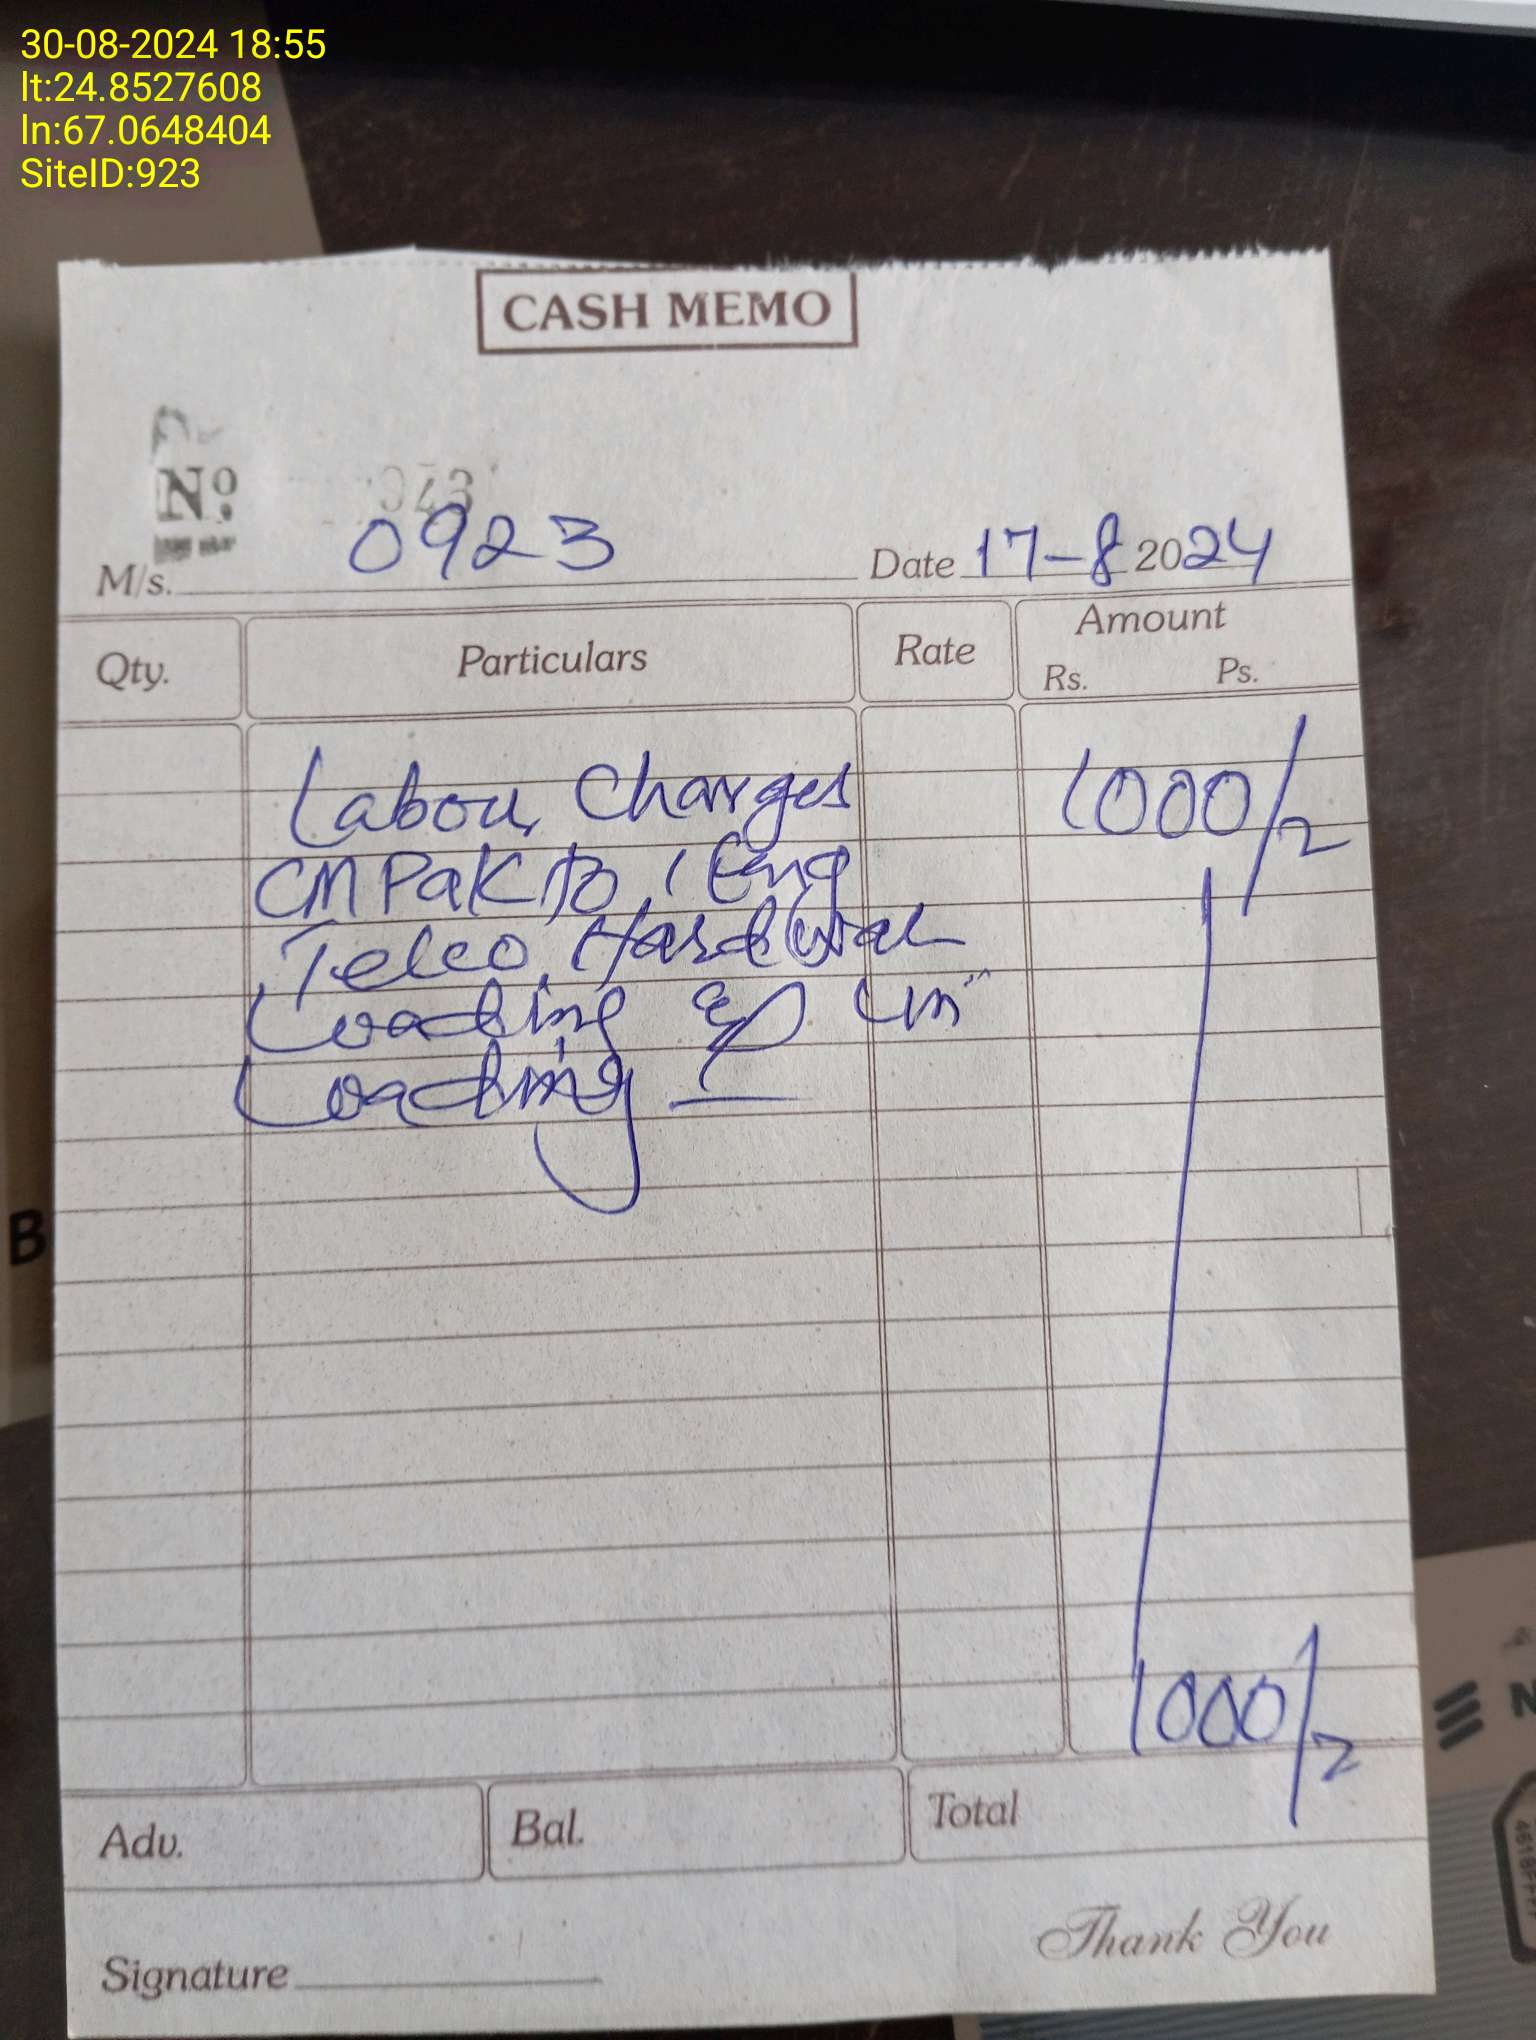 30-08-2024 18:55
lt:24.8527608
ln:67.0648404
SiteID:923
CASH MEMO
No.
M/s. 0923 Date 17-8 2024
Qty. Particulars Rate Amount
Rs. Ps.
Labour Charges 1000/
CM Pak to Eng
Telco Hardwar
Loading & Un
Loading
B
1000/
Adv. Bal. Total
Thank You
Signature